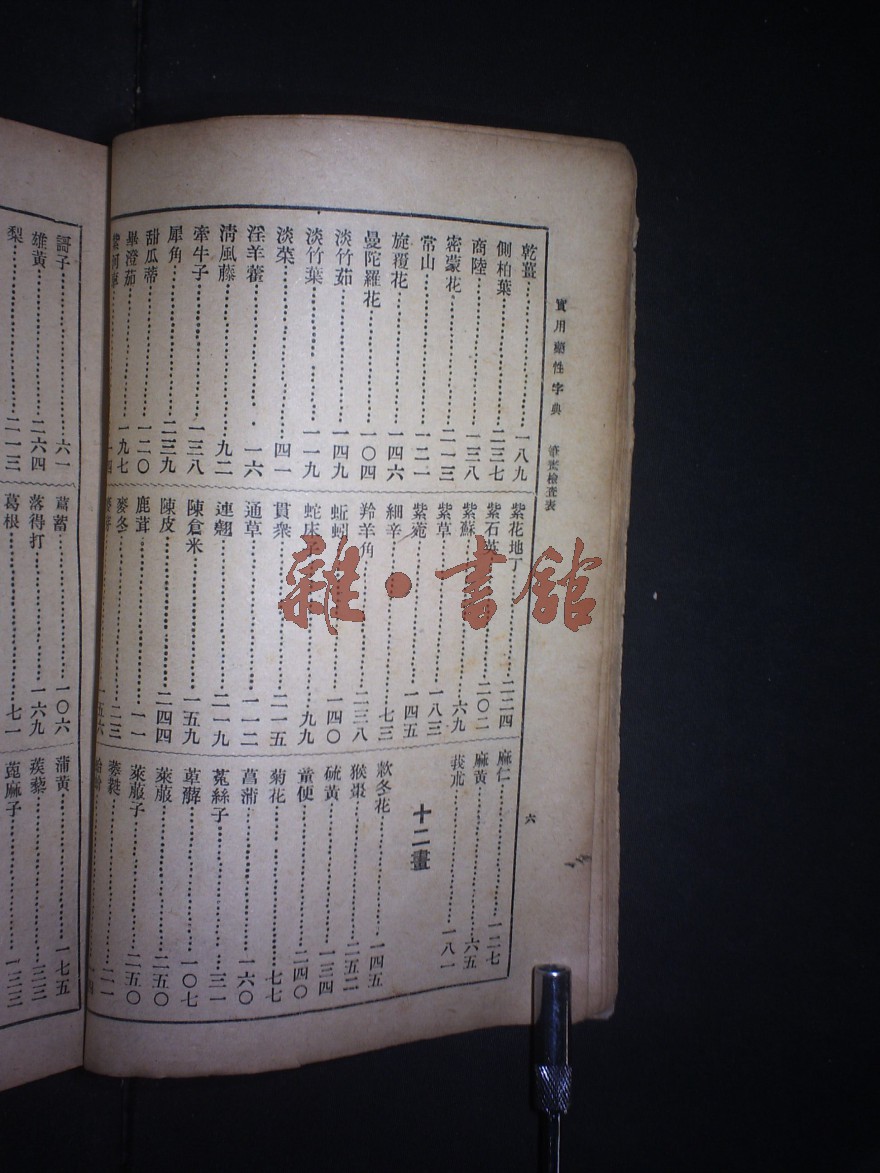 實用藥性字典 筆畫檢查表
六
乾薑 一八九
側柏葉 二三七
商陸 一三八
密蒙花 二一三
常山 一二一
旋覆花 一四六
曼陀羅花 一〇四
淡竹茹 一四九
淡竹葉 一一九
淡菜 四一
淫羊藿 一六
清風藤 九二
牽牛子 一三八
犀角 二三九
甜瓜蒂 一二〇
畢澄茄 一九七
紫花地丁 二二四
紫石英 二〇二
紫蘇 六九
紫草 一八三
紫菀 一四五
細辛 七三
羚羊角 二三八
蚯蚓 一四〇
蛇床子 九九
貫衆 二一五
通草 一一二
連翹 二一九
陳倉米 一五九
陳皮 二四四
鹿茸 一一
麥冬 二三
一五六
麻仁 一二七
麻黃 六五
莪朮 一八一
十二畫
欵冬花 一四五
猴棗 二五二
硫黃 一三四
童便 二四〇
菊花 七七
菖蒲 一六〇
菟絲子 三一
萆薢 一〇七
萊菔 二五〇
萊菔子 二五〇
葳蕤 二一
訶子 六一
雄黃 二六四
梨 二一三
萹蓄 一〇六
落得打 一六九
葛根 七一
蒲黃 一七五
蒺藜 三三
蓖麻子 一三三
雜·書館